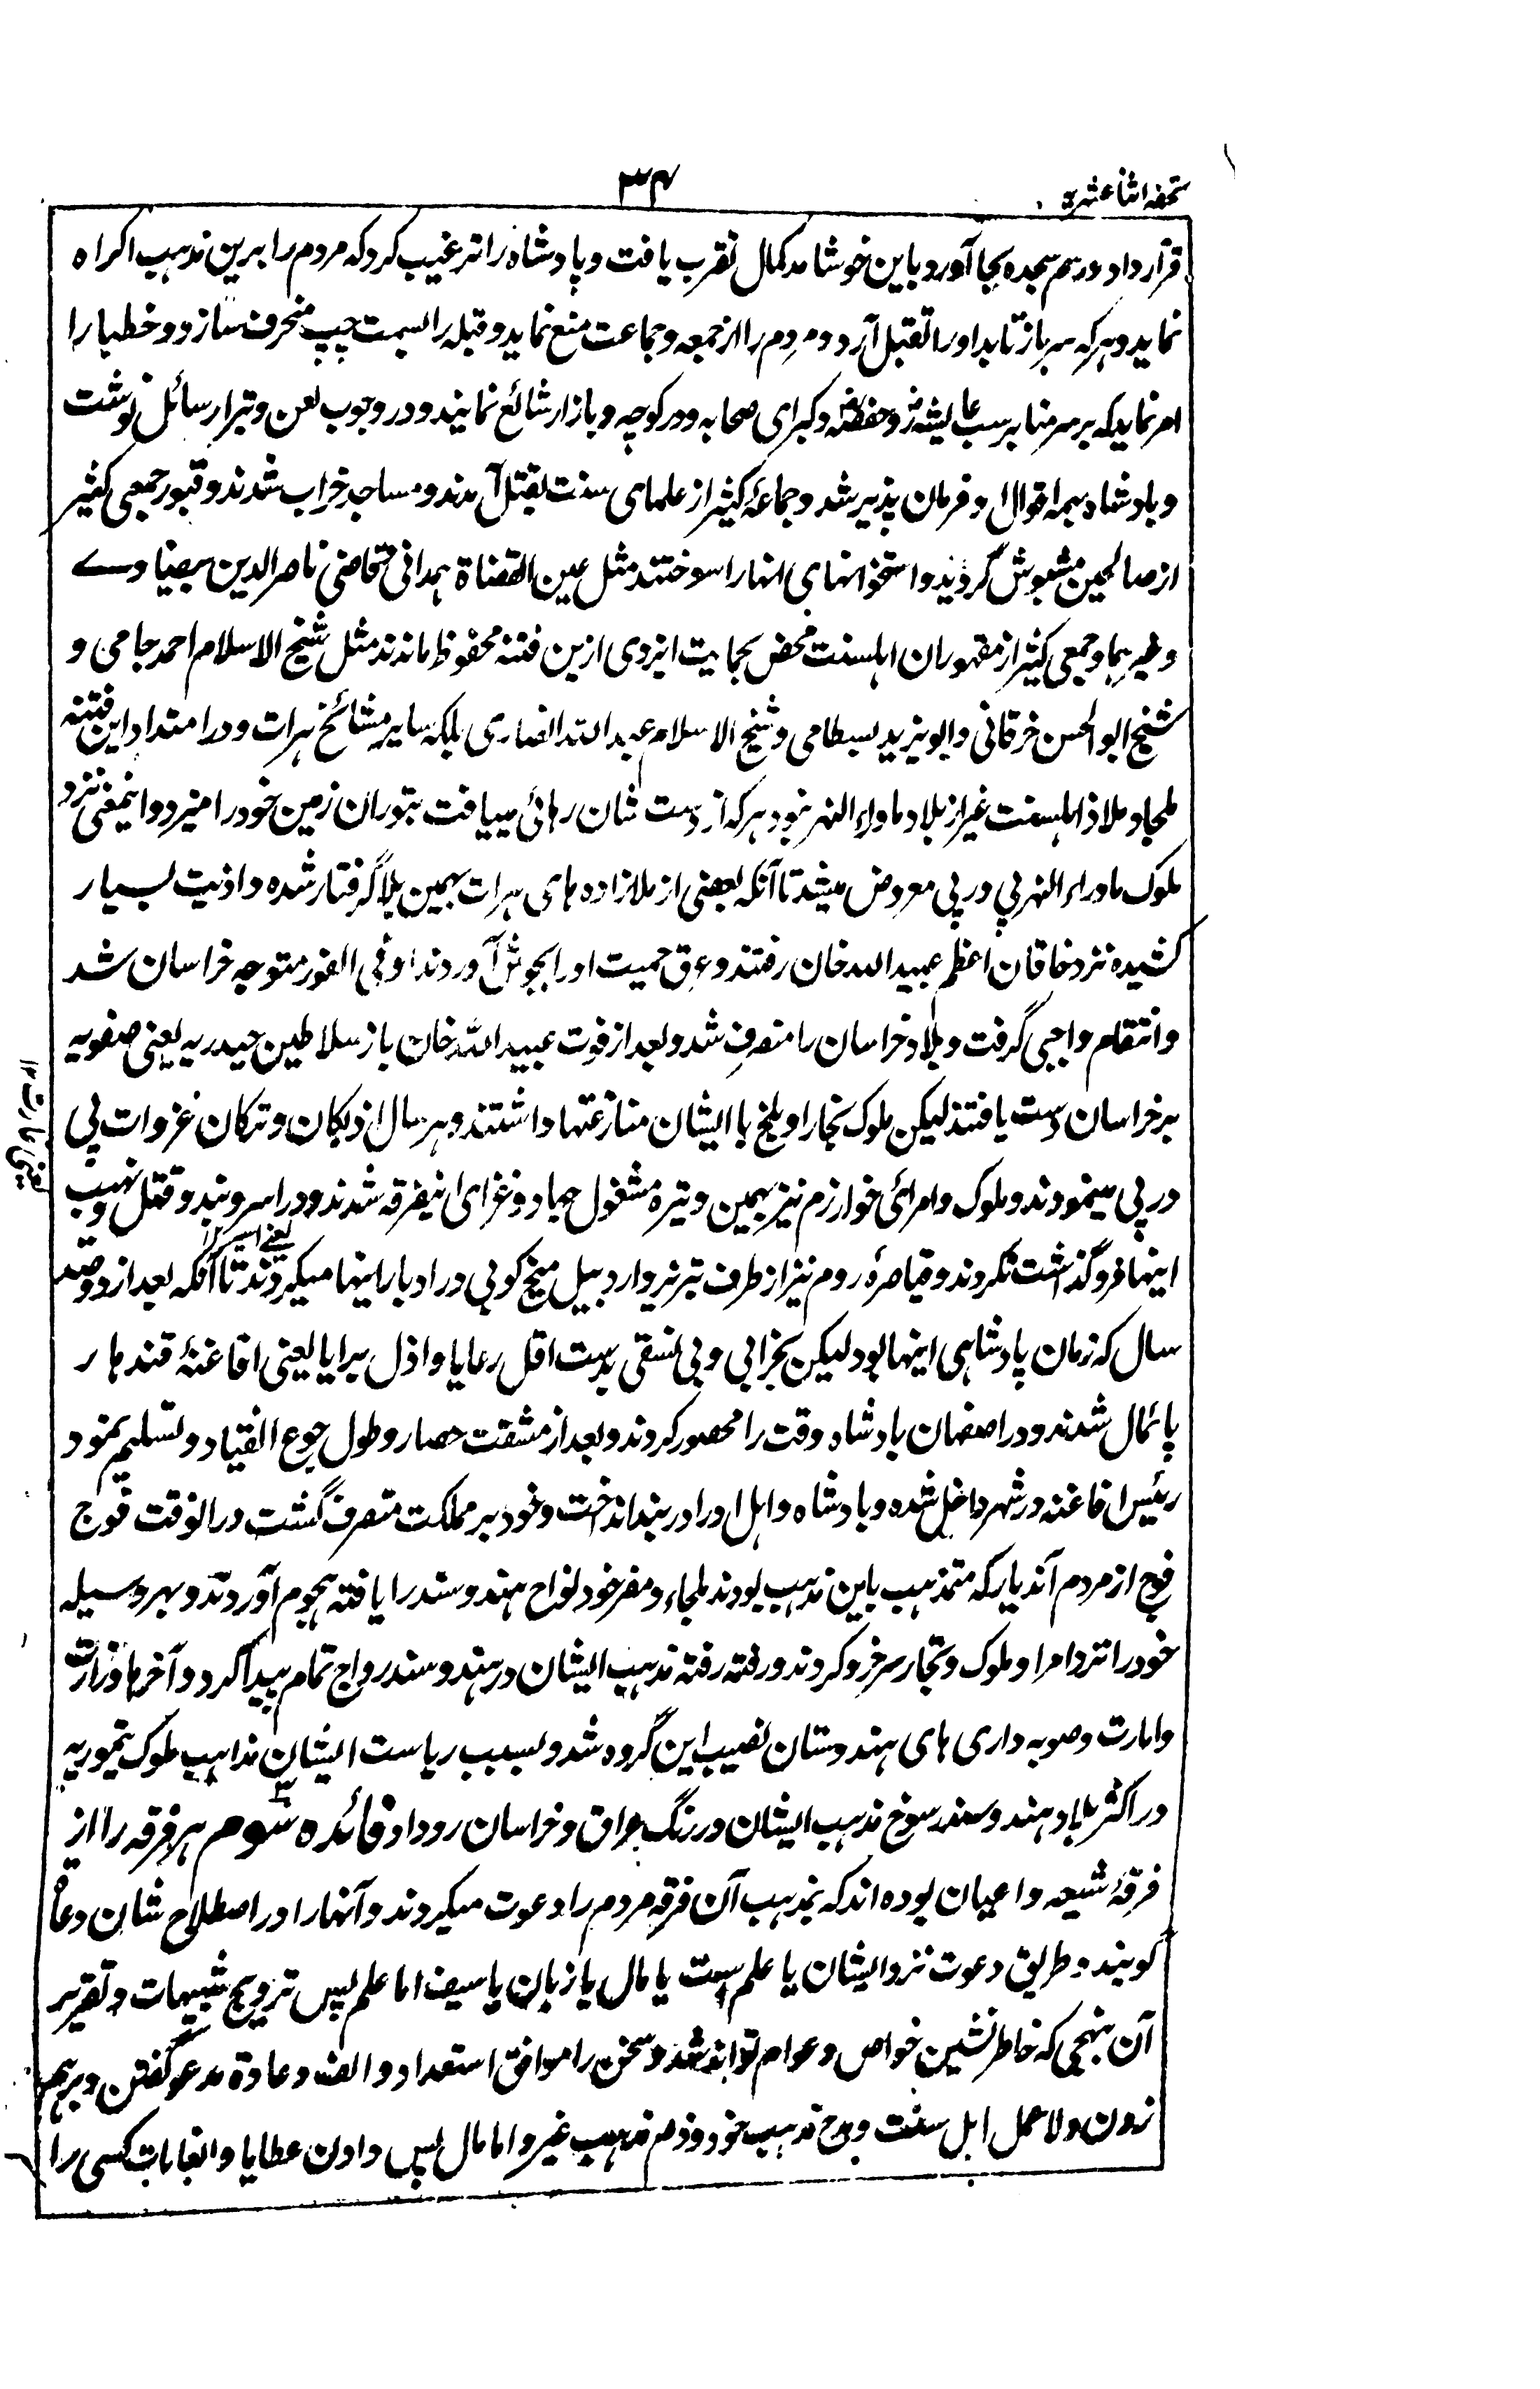 تحفه اثنا عشریه
۳۴
قرار داد و رسم سجده بجا آورد و باین خوشامد کمال تقرب یافت و پادشاه را ترغیب کرد که مردم را برین مذہب اکراه
نماید و ہر که سر باز تابد او را بقتل آرد و مردم را از جمعه و جماعت منع نماید و قبله را بسمت چپ منحرف سازد و خطبا را
امر نماید که بر سر منابر سب عایشہ و حفصہ و کبرای صحابه و در کوچه و بازار شائع نمایند و در وجوب لعن و تبرا رسائل نوشت
و بادشاه بہمه اقوال او فرمان پذیر شد و جماعۂ کثیر از علمای سنت بقتل آمدند و مساجد خراب شدند و قبور جمعی کثیر
از صالحین منبوش گردید و استخوانهای انہا را سوختند مثل عین القضاة ہمدانی و قاضی ناصر الدین بیضاوے
و غیرہما و جمعی کثیر از مقهوران اہلسنت محض بحمایت ایزدی ازین فتنه محفوظ ماندند مثل شیخ الاسلام احمد جامی و
شیخ ابو الحسن خرقانی و ابو یزید بسطامی و شیخ الاسلام عبد الله انصاری بلکه سایر مشائخ ہرات و در امتداد این فتنه
ملجا و ملاذ اہلسنت غیر از بلاد ماوراء النہر نبود ہر که از دست شان رہائی مییافت بتوران زمین خود را میزد و اینمعنی نزد
ملوک ماوراء النہر پی در پی معروض میشد تا آنکه بعضی از ملازاده ہای ہرات بہمین بلا گرفتار شده و اذیت بسیار
کشیده نزد خاقان اعظم عبید الله خان رفتند و عرق حمیت او را بجوش آوردند او فی الفور متوجه خراسان شد
و انتقام واجبی گرفت و بلاد خراسان را متصرف شد و بعد از فوت عبید الله خان باز سلاطین حیدریه یعنی صفویه
بر خراسان دست یافتند لیکن ملوک بخارا و بلخ با ایشان منازعتها داشتند و ہر سال ازبکان و ترکان غزوات پی
در پی مینمودند و ملوک و امرائی خوارزم نیز بہمین وتیره مشغول جہاد و غزای اینفرقه شدند و در اسر و بند و قتل و نہب
اینہا فروگذاشت نکردند و قیاصرۂ روم نیز از طرف تبریز و اردبیل میخ کوبی در ادبار اینہا میکردند تا آنکه بعد از دو صد
سال که زمان پادشاہی اینہا بود لیکن بخرابی و بی نسقی بدست اقل رعایا و اذل برایا یعنی افاغنۂ قندہار
پائمال شدند و در اصفہان بادشاه وقت را محصور کردند و بعد از مشقت حصار و طول جوع انقیاد و تسلیم نمود
رئیس افاغنه در شہر داخل شده و بادشاه و اہل او را در بند انداخت و خود بر مملکت متصرف گشت در انوقت فوج
فوج از مردم آندیار که متمذہب باین مذہب بودند ملجاء و مفر خود نواح ہند و سند را یافته ہجوم آوردند و بہر وسیله
خود را نزد امرا و ملوک و تجار سرخرو کردند و رفته رفته مذہب ایشان در ہند و سند رواج تمام پیدا کرد و آخرہا وزارت
و امارت و صوبه داری ہای ہندوستان نصیب این گروه شد و بسبب ریاست ایشان مذاہب ملوک تیموریه
در اکثر بلاد ہند و سند رسوخ مذہب ایشان در رنگ عراق و خراسان رو داد فائده سوم ہر فرقه را از
فرقۂ شیعه داعیان بوده اند که بمذہب آن فرقه مردم را دعوت میکردند و آنہا را در اصطلاح شان دعاة
گویند و طریق دعوت نزد ایشان یا علم ست یا مال یا زبان یا سیف اما علم پس ترویج شبہات و تقریر
آن بنہجی که خاطر نشین خواص و عوام تواند شد و سخن را موافق استعداد و الف و عادة مدعو گفتن و برہم
زدن دلائل اہل سنت و مدح مذہب خود و ذم مذہب غیر و اما مال پس دادن عطایا و انعامات کسی را